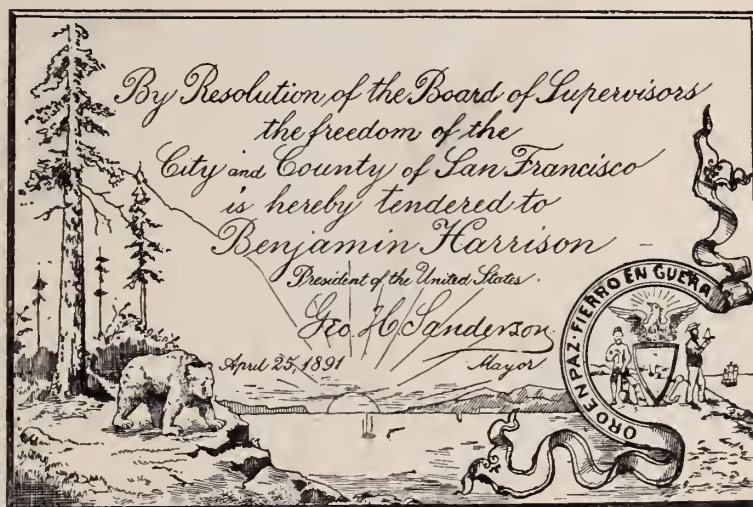 By Resolution of the Board of Supervisors
the freedom of the
City and County of San Francisco
is hereby tendered to
Benjamin Harrison
President of the United States.
Geo. H. Sanderson
April 25, 1891 Mayor.
ORO EN PAZ · FIERRO EN GUERA